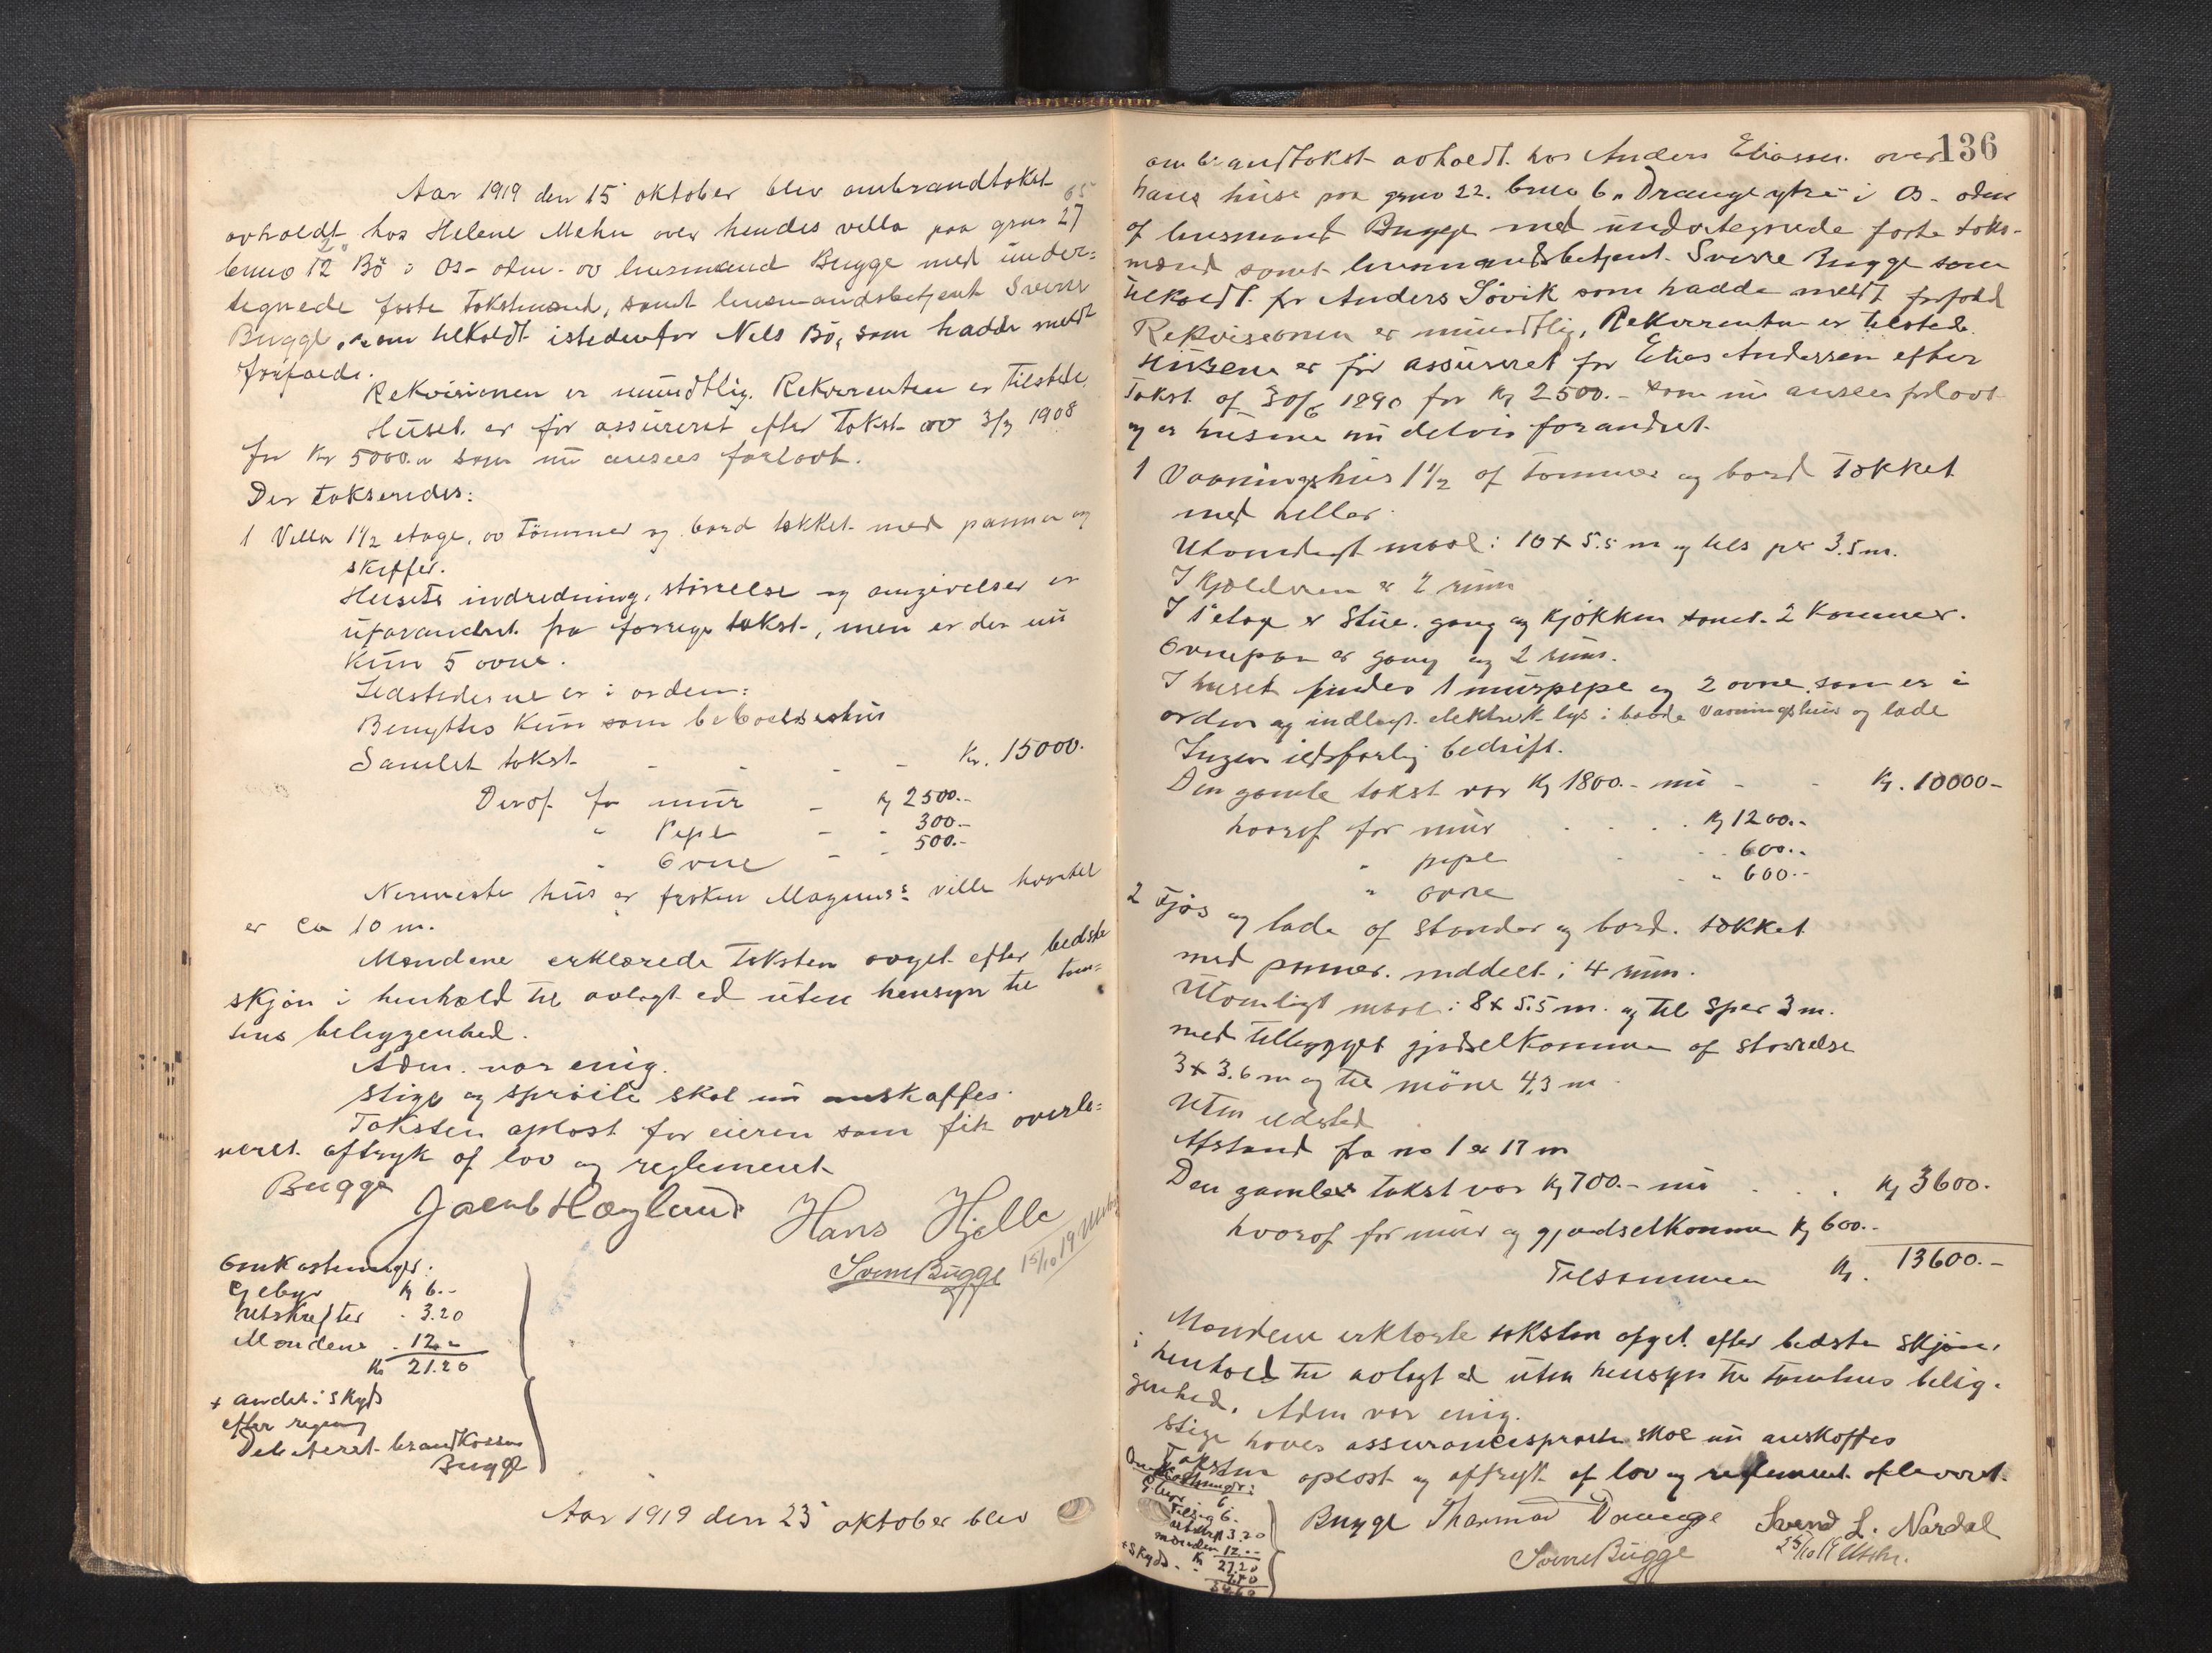 Aar 1919 den 15 oktober blev ombrandtakst
avholdt hos Helene Mehn over hendes villa paa grno 27
brno 12 Bö i Os - adm. av lensmand Bugge med under=
tegnede faste takstmænd, samt lensmandsbetjent Sverre
Bugge, som tilkaldt istedenfor Nels Bö, som hadde meldt
forfald.
Rekvisionen er mundtlig. Rekvirenten er tilstede.
Huset er för assureret efter takst av 3/7 1908
for Kr 5000.- som nu ansees forlavt.
Der takseredes:
1 Villa 1 1/2 etage, av tömmer og bord tækket med panner og
skiffer.
Husets indredning, störrelse og omgivelser er
uforandret fra forrige takst, men er der nu
kun 5 ovne.
Ildstederne er i orden:
Benyttes kun som beboelseshus
Samlet takst - - - - Kr. 15000.
Derof for mur - Kr 2500.-
" Pipe - - 300.-
" Ovne - - 500.-
Nermeste hus er frøken Magnus's villa hvortil
er ca 10 m.
Mændene erklærede taksten avgit efter bedste
skjøn i henhold til avlagt ed uten hensyn til tom=
tens beliggenhed.
Adm. var enig.
Stige og sprøite skal nu anskaffes.
Taksten oplæst for eieren som fik overle=
veret aftryk af lov og reglement
Bugge Jacob Hegglund Hans Hjelle
Sverre Bugge 15/10 19
Omkostninger:
Gebyr Kr 6.-
Utskrifter - 3.20
Mændene - 12.-
Kr 21.20
+ andel i skyds
efter regning
Debiteret brandkassen
Bugge
Aar 1919 den 23 oktober blev
136
ombrandtakst avholdt hos Anders Eliassen over
hans huse paa grno 22. brno 6 "Drange ytre" i Os - adm
af lensmand Bugge med undertegnede faste taks-
mænd samt lensmandsbetjent Sverre Bugge som
tilkaldt for Anders Søvik som hadde meldt forfald
Rekvisionen er mundtlig, Rekvirenten er tilstede.
Husene er för assureret for Elias Andersen efter
takst af 30/6 1890 for Kr 2500.- som nu ansees forlavt
og er husene nu delvis forandret.
1 Vaaningshus 1 1/2 af tømmer og bord tækket
med heller.
Utvendigt maal: 10 x 5.5 m og til spr 3.5 m.
I kjælderen er 2 rum
I 1 etage er Stue, gang og kjøkken samt 2 kammer.
Ovenpaa er gang og 2 rum.
I huset findes 1 murpipe og 2 ovne som er i
orden og indlagt elektrisk lys i baade vaaningshus og lade
Ingen ildsfarlig bedrift.
Den gamle takst var Kr 1800.- nu - - Kr. 10000-
hvoraf for mur . . . . Kr 1200.-
" pipe - - - 600.-
" ovne - - 600.-
2 Fjøs og lade af stander og bord. tækket
med panner. inddelt i 4 rum.
Utvendigt maal: 8 x 5.5 m. og til sper 3 m.
med tilbygget gjødselkommer af størrelse
3 x 3.6 m og til møne 4.3 m.
Uten ildsted
Afstand fra no 1 er 17 m
Den gamle takst var Kr 700.- nu . . . Kr 3600.
hvoraf for mur og gjødselkommen Kr 600.-
Tilsammen Kr. 13600.-
Mændene erklærte taksten afgit efter bedste skjøn,
i henhold til avlagt ed uten hensyn til tomtens belig-
genhed. Adm var enig.
Stige haves assurancesprøite skal nu anskaffes
Taksten oplæst og aftryk af lov og reglement afleveret.
Omkostninger:
Gebyr 6.
Tillæg 6.
utskr 3.20
mænden 12.-
Kr 27.20
+ Skyds -
Bugge Tharmod Drange Svend L. Nordal
Sverre Bugge 25/10 19 Utskr.